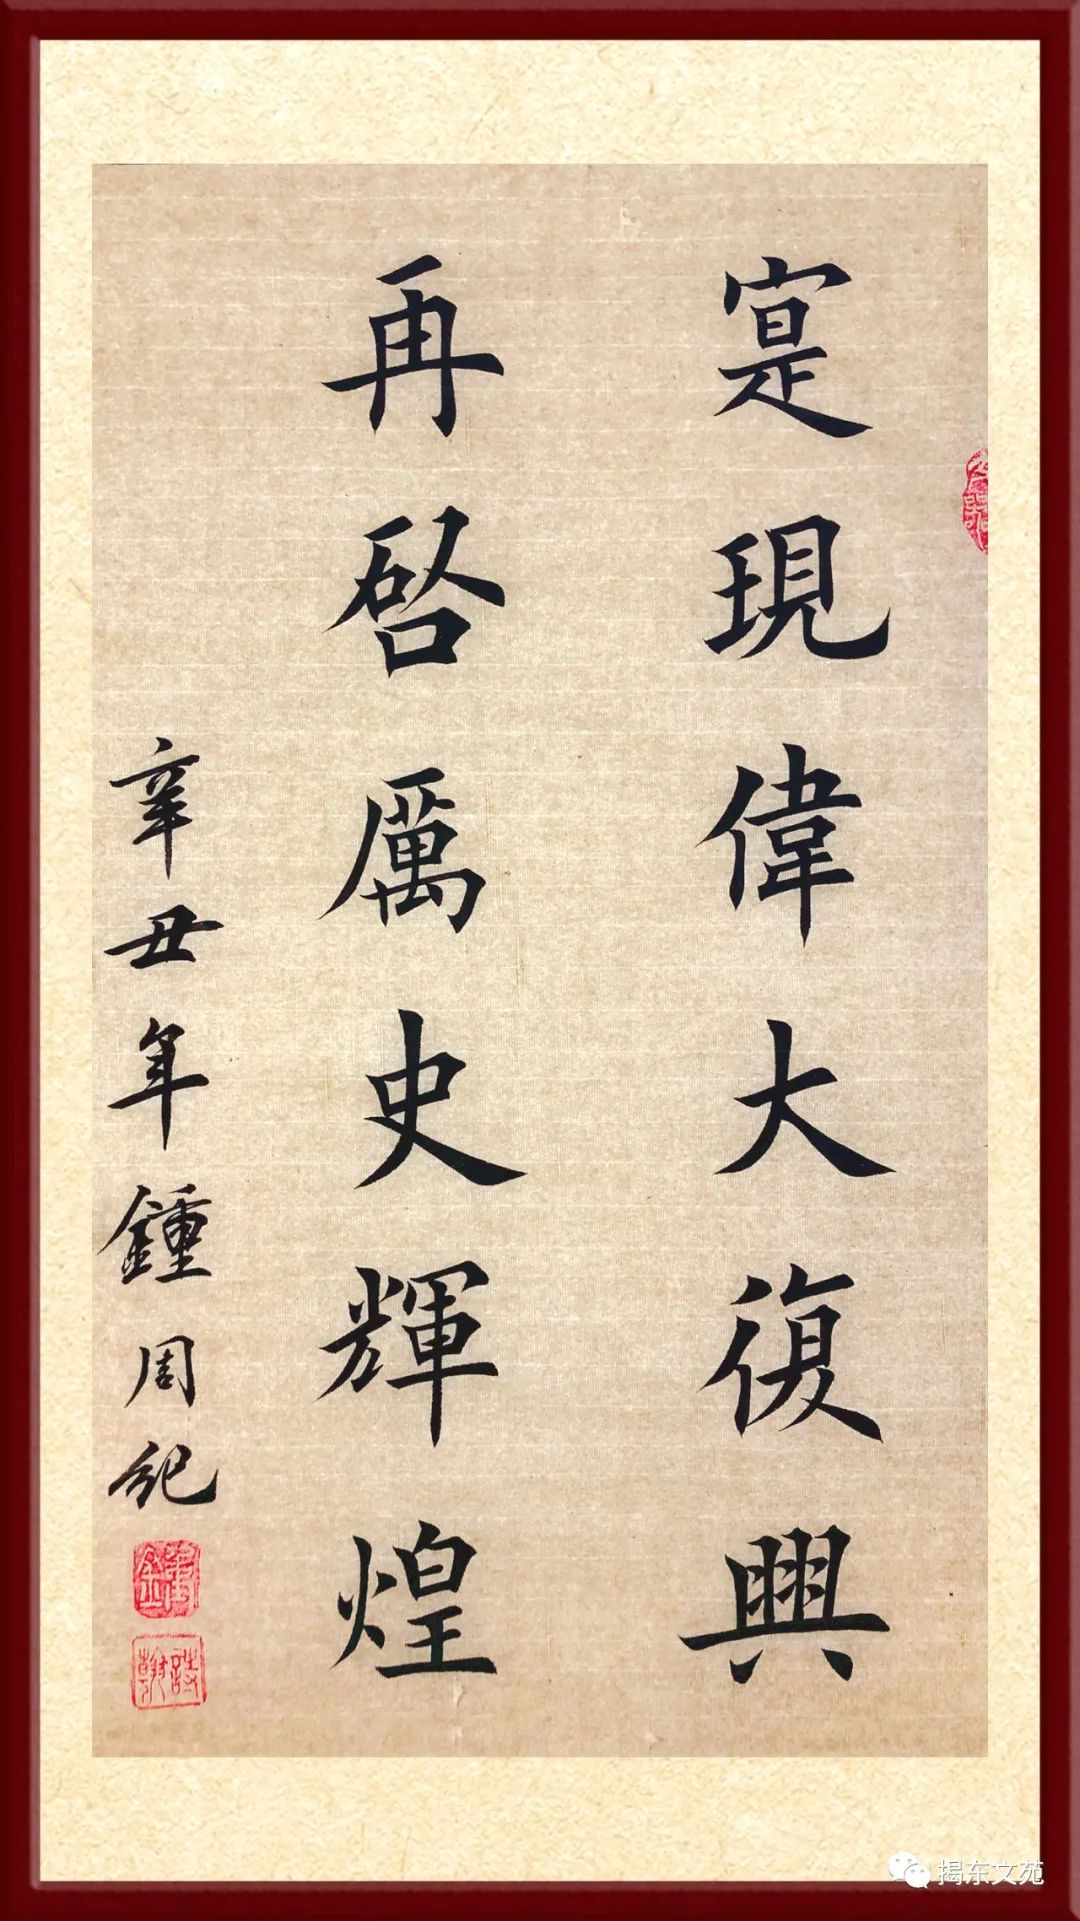 寔現偉大復興
再啓厲史輝煌
辛丑年鍾周紀
揭东文苑